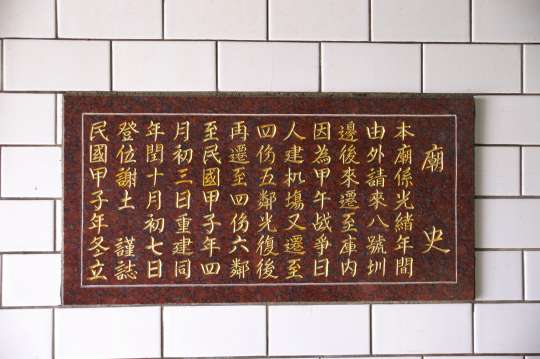 廟史
本廟係光緒年間
由外請來八號圳
邊後來遷至庫內
因為甲午战爭日
人建机塲又遷至
四份五鄰光復後
再遷至四份六鄰
至民國甲子年四
月初三日重建同
年閏十月初七日
登位謝土 謹誌
民國甲子年冬立